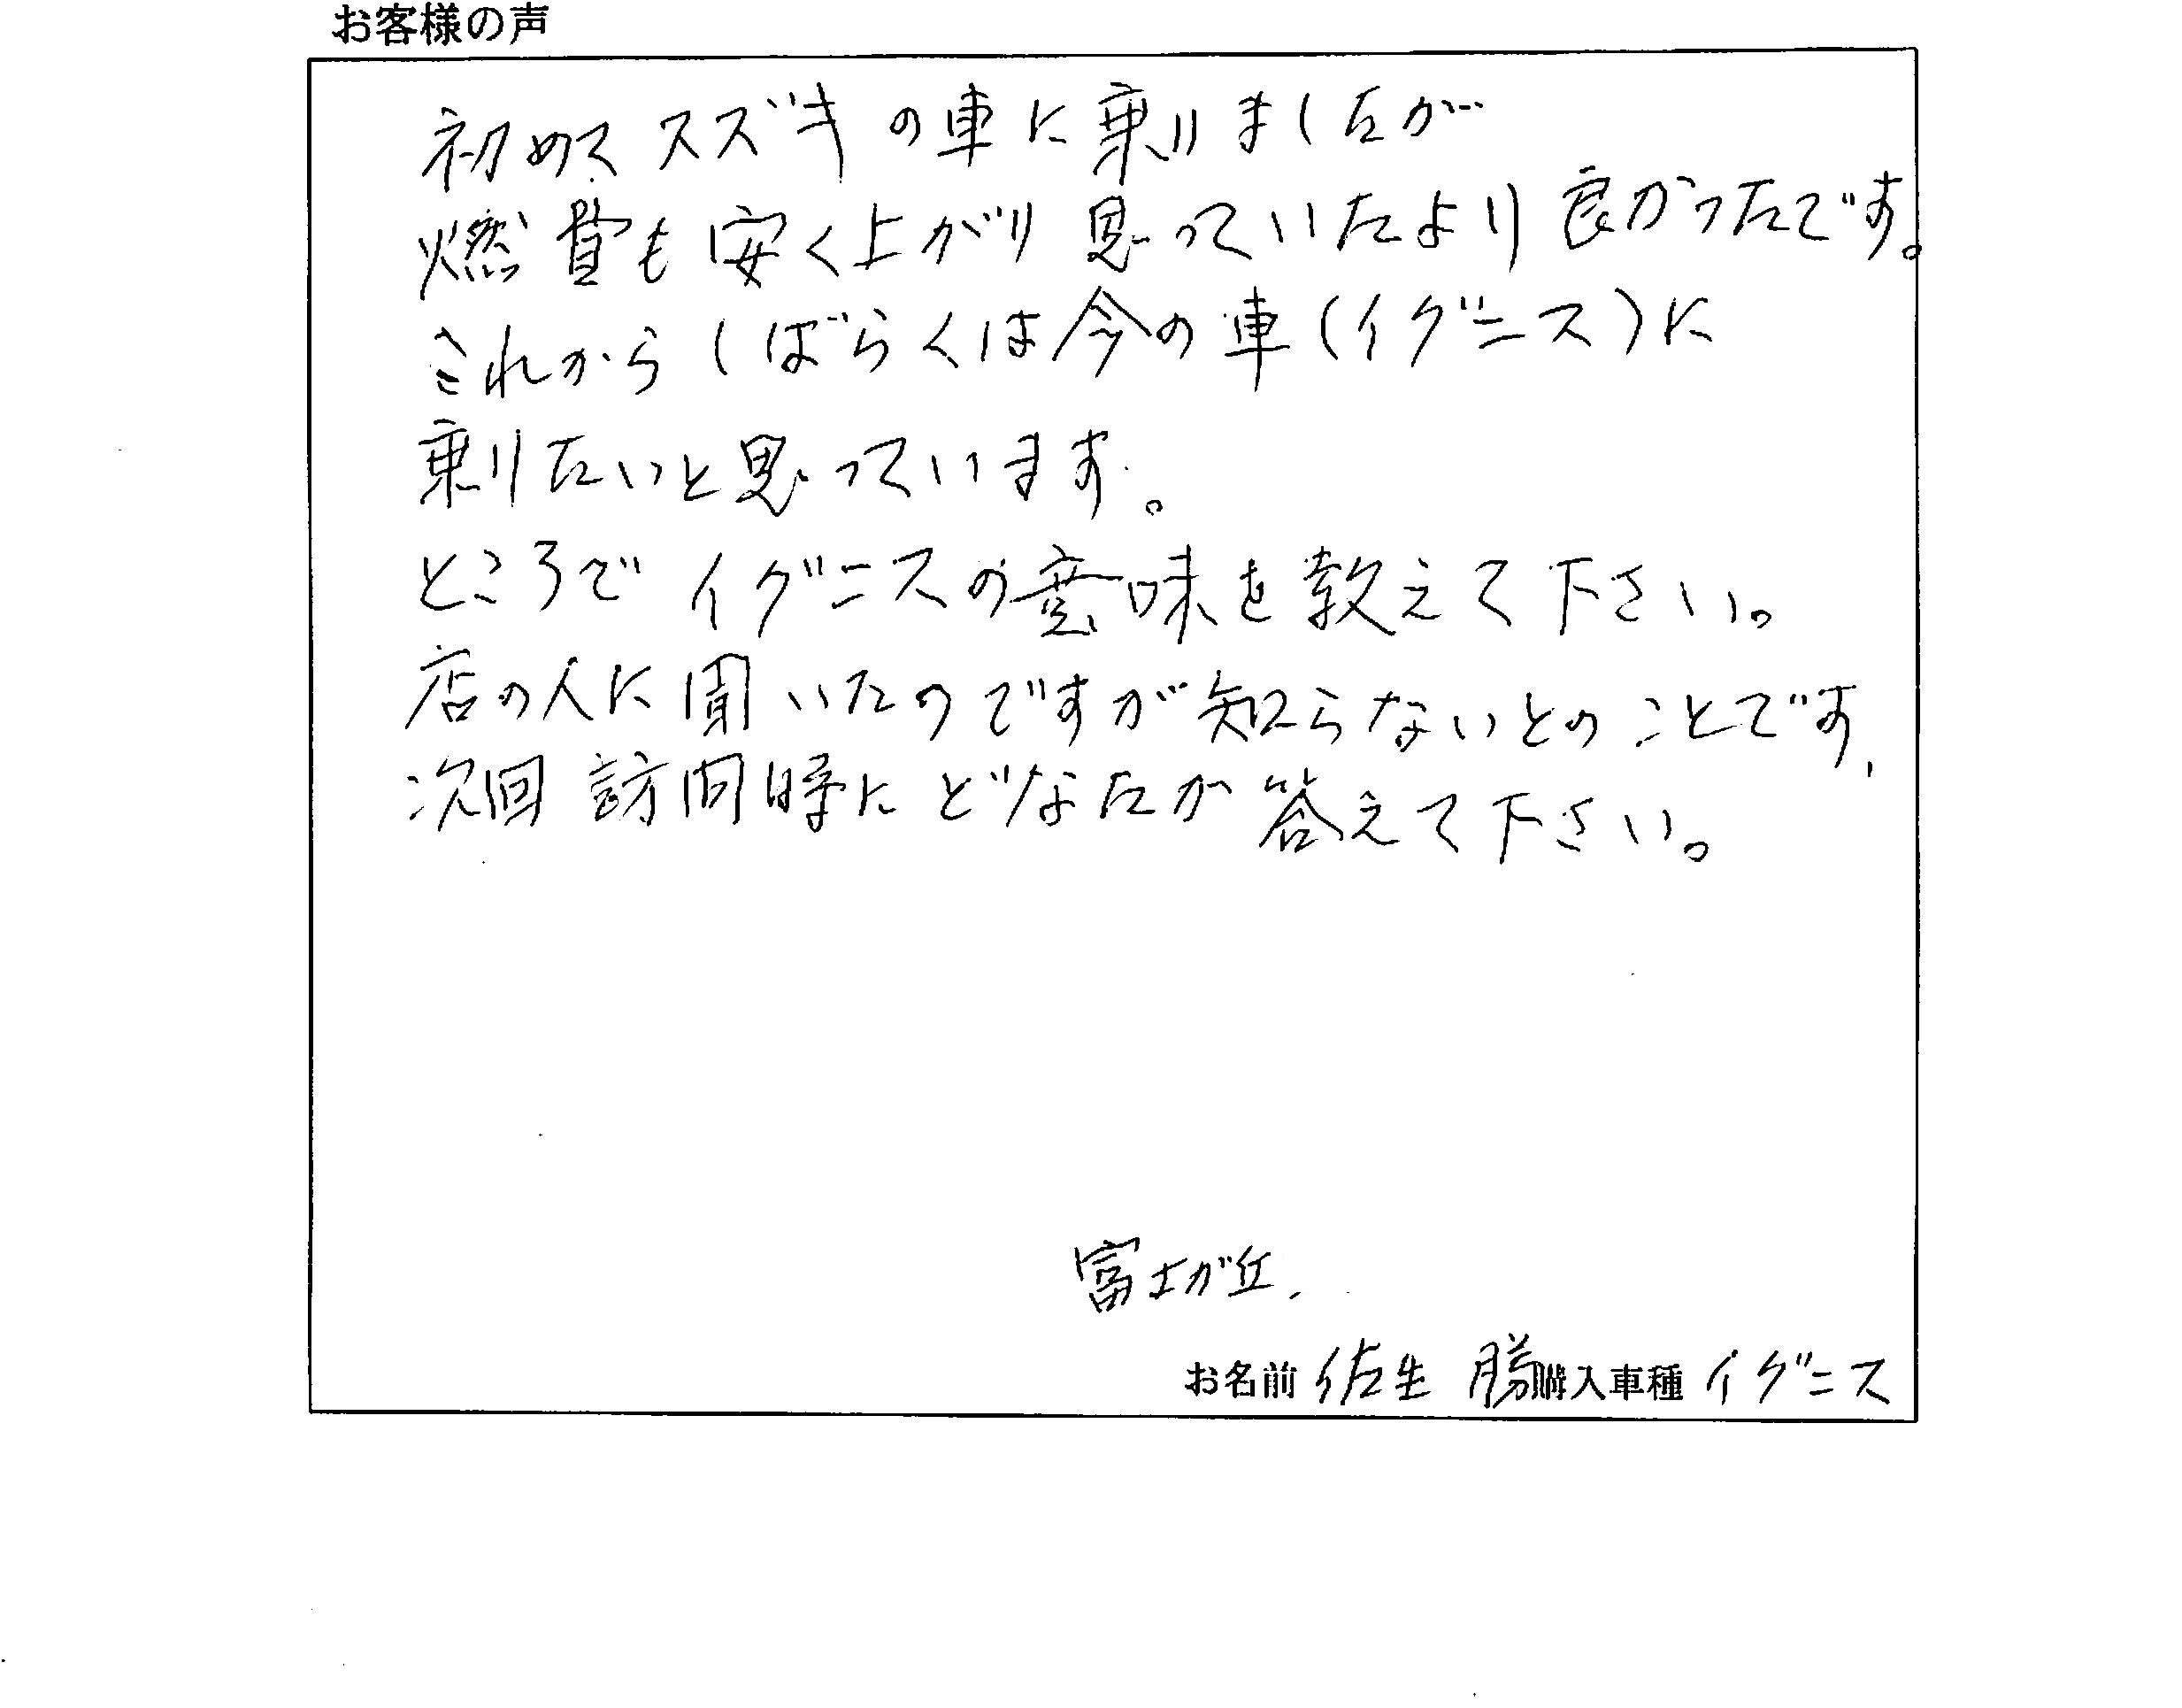 お客様の声
初めてスズキの車に乗りましたが
燃費も安く上がり思っていたより良かったです。
これからしばらくは今の車(イグニス)に
乗りたいと思っています。
ところでイグニスの意味を教えて下さい。
店の人に聞いたのですが知らないとのことです、
次回訪問時にどなたか答えて下さい。
富士が丘、
お名前 佐生 勝 購入車種 イグニス